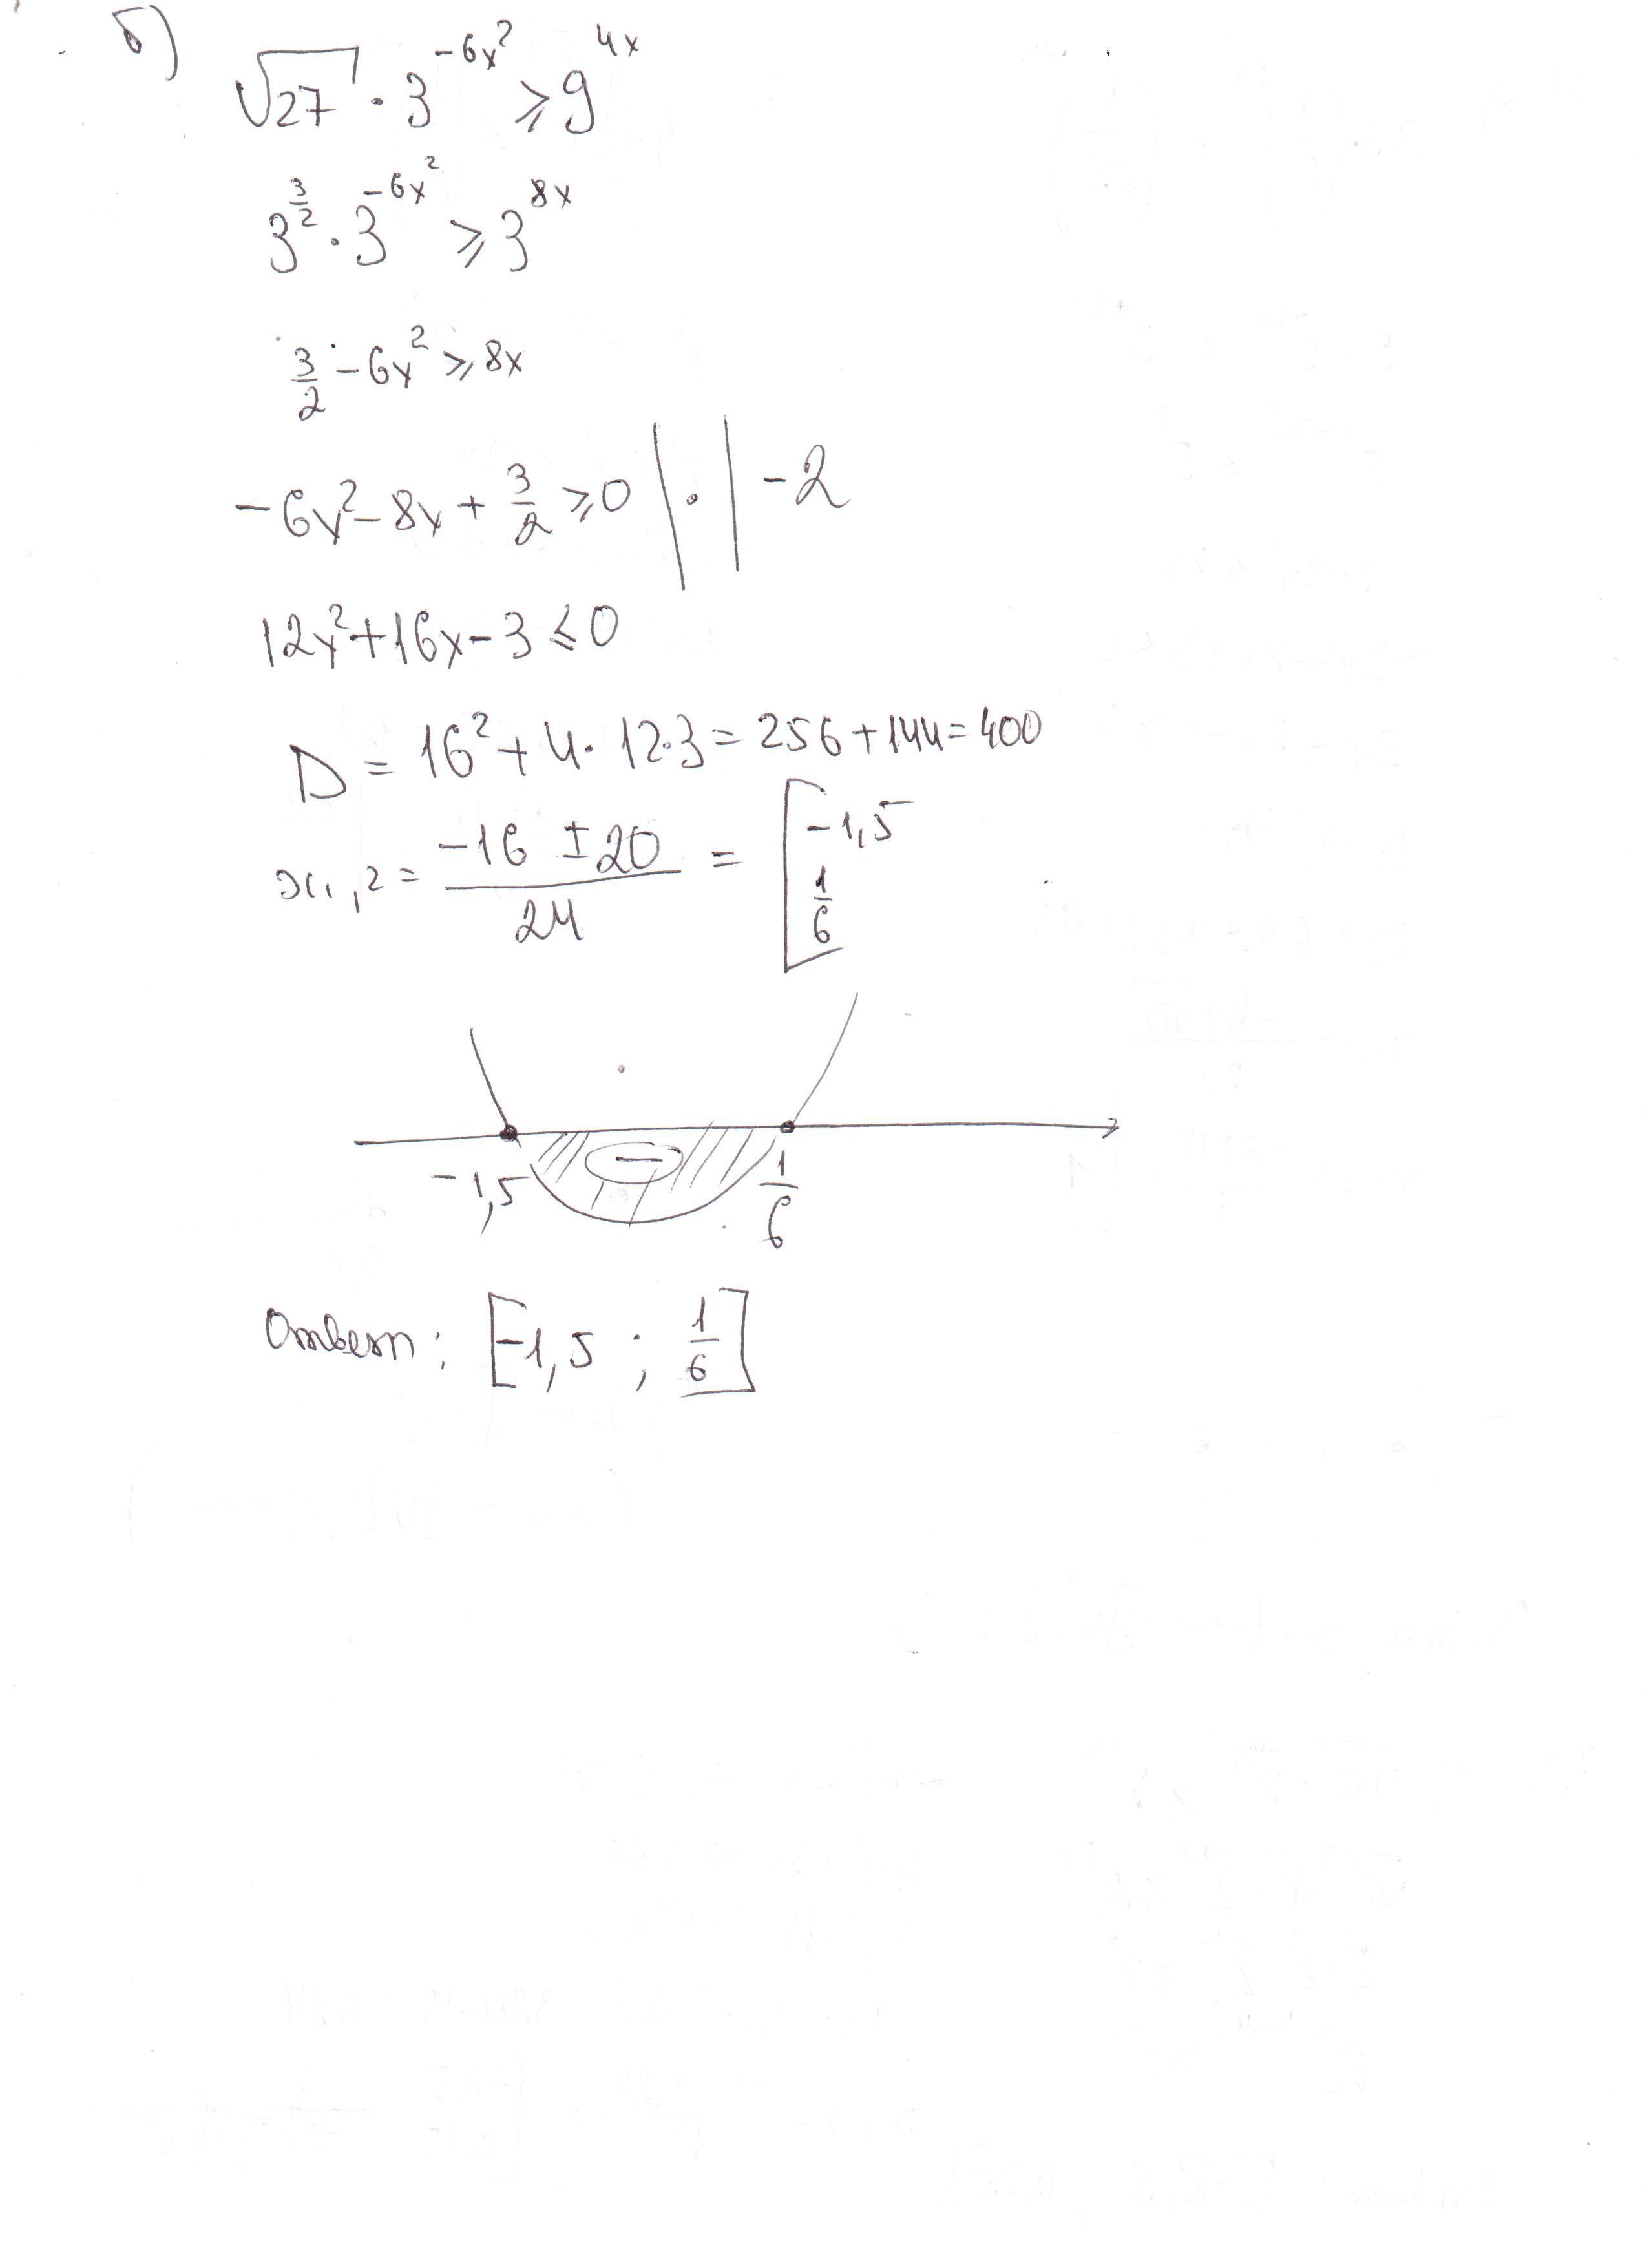 б)
√27 · 3^(-6x²) ⩾ 9^(4x)
3^(3/2) · 3^(-6x²) ⩾ 3^(8x)
3/2 - 6x² ⩾ 8x
-6x² - 8x + 3/2 ⩾ 0 | · | -2
12x² + 16x - 3 ⩽ 0
D = 16² + 4 · 12 · 3 = 256 + 144 = 400
x₁,₂ = (-16 ± 20)/24 = [ -1,5
1/6
−
-1,5 1/6
Ответ: [-1,5 ; 1/6]